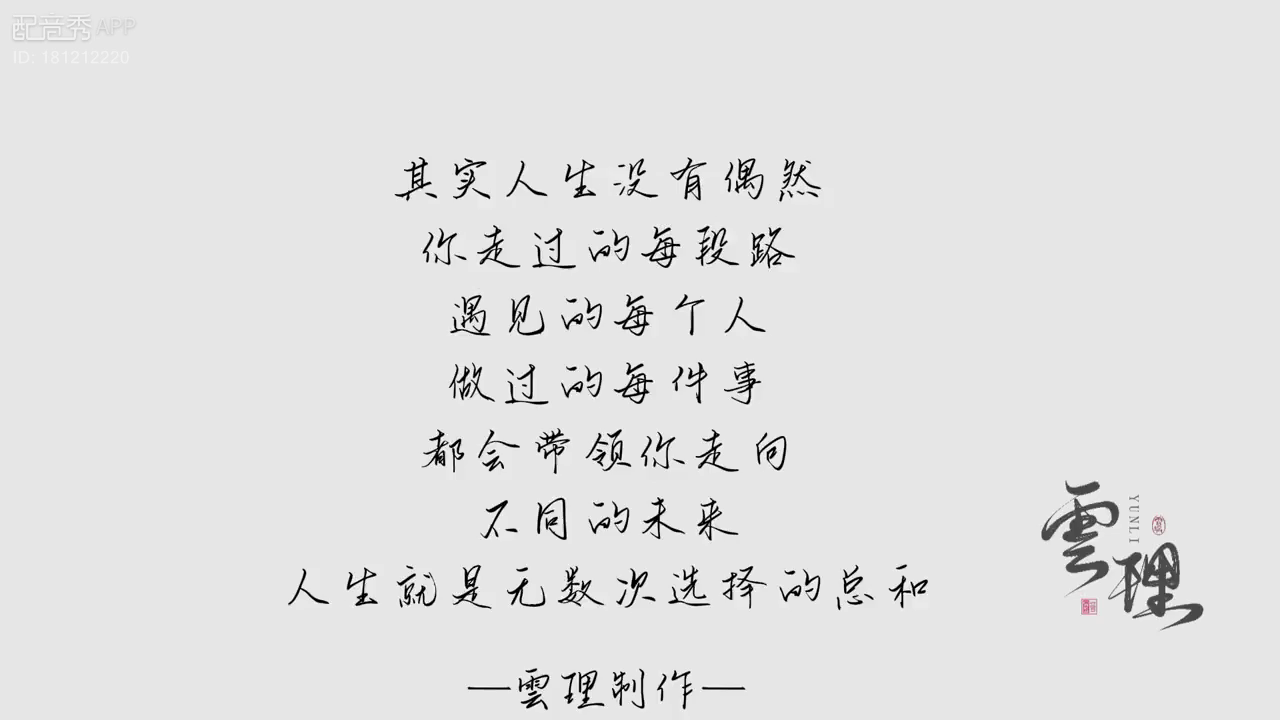 配音秀APP
ID: 181212220
其实人生没有偶然
你走过的每段路
遇见的每个人
做过的每件事
都会带领你走向
不同的未来
人生就是无数次选择的总和
—雲理制作—
雲理
YUNLI